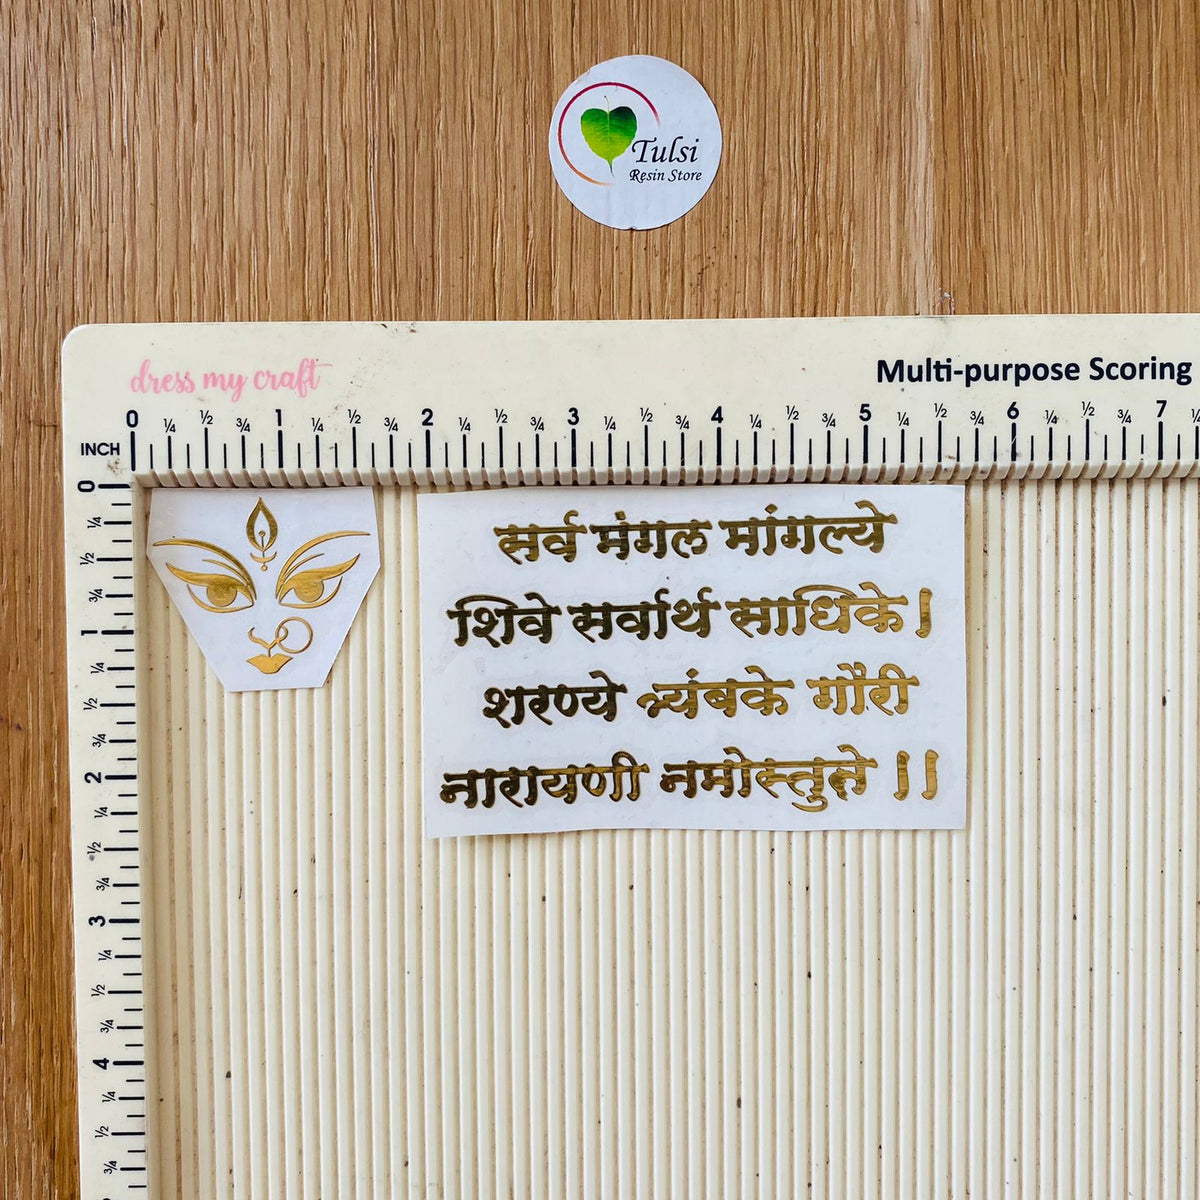 Tulsi
Resin Store
dress my craft
Multi-purpose Scoring
0 ¼ ½ ¾ 1 ¼ ½ ¾ 2 ¼ ½ ¾ 3 ¼ ½ ¾ 4 ¼ ½ ¾ 5 ¼ ½ ¾ 6 ¼ ½ ¾ 7
INCH
0 ¼ ½ ¾ 1 ¼ ½ ¾ 2 ¼ ½ ¾ 3 ¼ ½ ¾ 4 ¼ ½ ¾
सर्व मंगल मांगल्ये
शिवे सर्वार्थ साधिके।
शरण्ये त्र्यंबके गौरी
नारायणी नमोस्तुते ।।